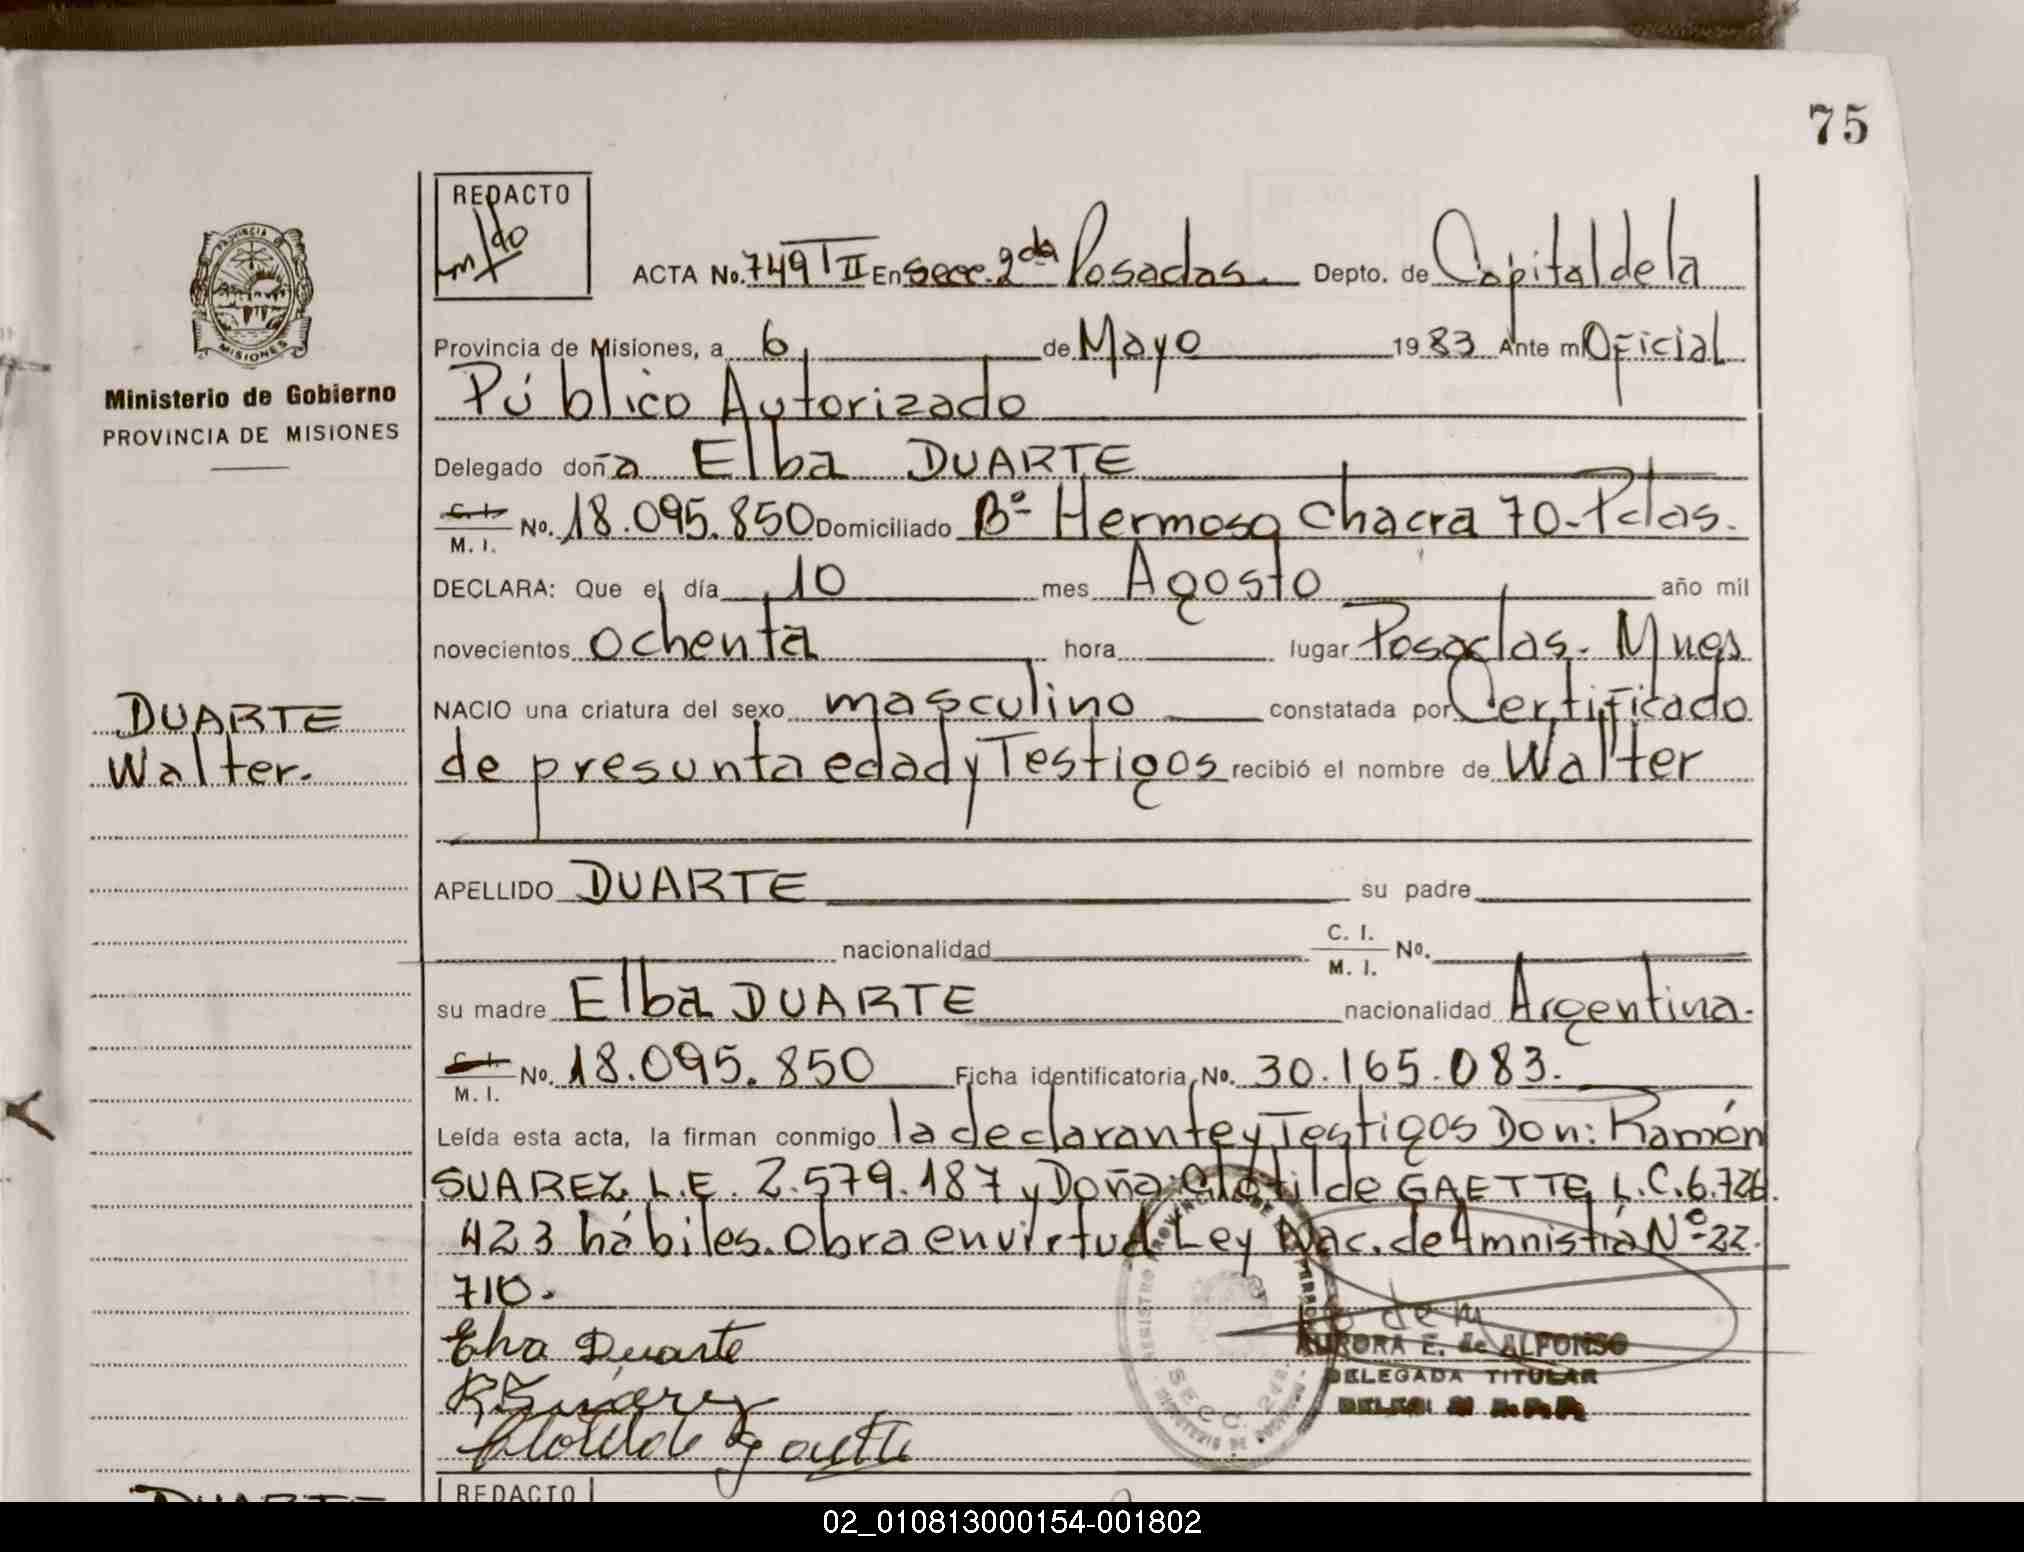 75
REDACTO
ACTA No. 749 T II En Secc. 2da Posadas. Depto. de Capital de la
PROVINCIA DE
MISIONES
Provincia de Misiones, a 6 de Mayo 1983 Ante mi Oficial
Ministerio de Gobierno
PROVINCIA DE MISIONES
Público Autorizado
Delegado doña Elba DUARTE
C. I.
M. I. No. 18.095.850 Domiciliado Bº Hermoso Chacra 70-Pdas.
DECLARA: Que el día 10 mes Agosto año mil
novecientos ochenta hora lugar Posadas. Mnes
DUARTE
Walter.
NACIO una criatura del sexo masculino constatada por Certificado
de presunta edad y Testigos recibió el nombre de Walter
APELLIDO DUARTE su padre
nacionalidad C. I.
M. I. No.
su madre Elba DUARTE nacionalidad Argentina.
C. I.
M. I. No. 18.095.850 Ficha identificatoria No. 30.165.083.
Leída esta acta, la firman conmigo la declarante y Testigos Don: Ramón
SUAREZ L.E. 2.579.187 y Doña: Clotilde GAETTE L.C. 6.726.
423 hábiles. Obra en virtud Ley Nac. de Amnistía Nº 22.
710.
Elva Duarte
R Suárez
Clotilde Gaette
SECC. 2da.
AURORA E. de ALFONSO
DELEGADA TITULAR
DUARTE
REDACTO
02_010813000154-001802